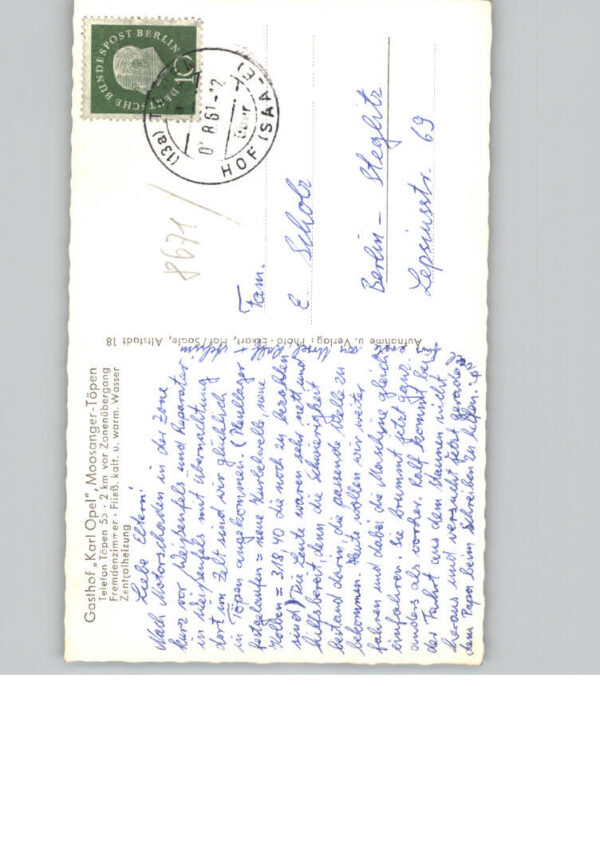 Gasthof „Karl Opel", Moosanger-Töpen
Telefon Töpen 55 · 2 km vor Zonenübergang
Fremdenzimmer · Fließ. kalt. u. warm. Wasser
Zentralheizung
Liebe Eltern!
Nach Motorschaden in der Zone
kurz vor Weißenfels und Reparatur
in Weißenfels mit Übernachtung
dort im Zelt sind wir glücklich
in Töpen angekommen. (Pleullager
festgelaufen = neue Kurbelwelle, neue
Kolben = 318,40 die noch zu bezahlen
sind) Die Leute waren sehr nett und
hilfsbereit, denn die Schwierigkeit
bestand darin, die passende Welle zu
bekommen. Heute wollen wir weiter
fahren und dabei die Maschine gleich
einfahren. Sie brummt jetzt ganz
anders als vorher. Ralf kommt bei
der Fahrt aus dem Staunen nicht
heraus und versucht jetzt gerade
dem Papa beim Schreiben zu helfen.
Aufnahme u. Verlag: Photo-Eckart, Hof/Saale, Altstadt 18
DEUTSCHE BUNDESPOST BERLIN
10
(13a)
8.61-12
über
HOF (SAALE)
8671
Fam.
E Scholz
Berlin - Steglitz
Lepsiusstr. 69